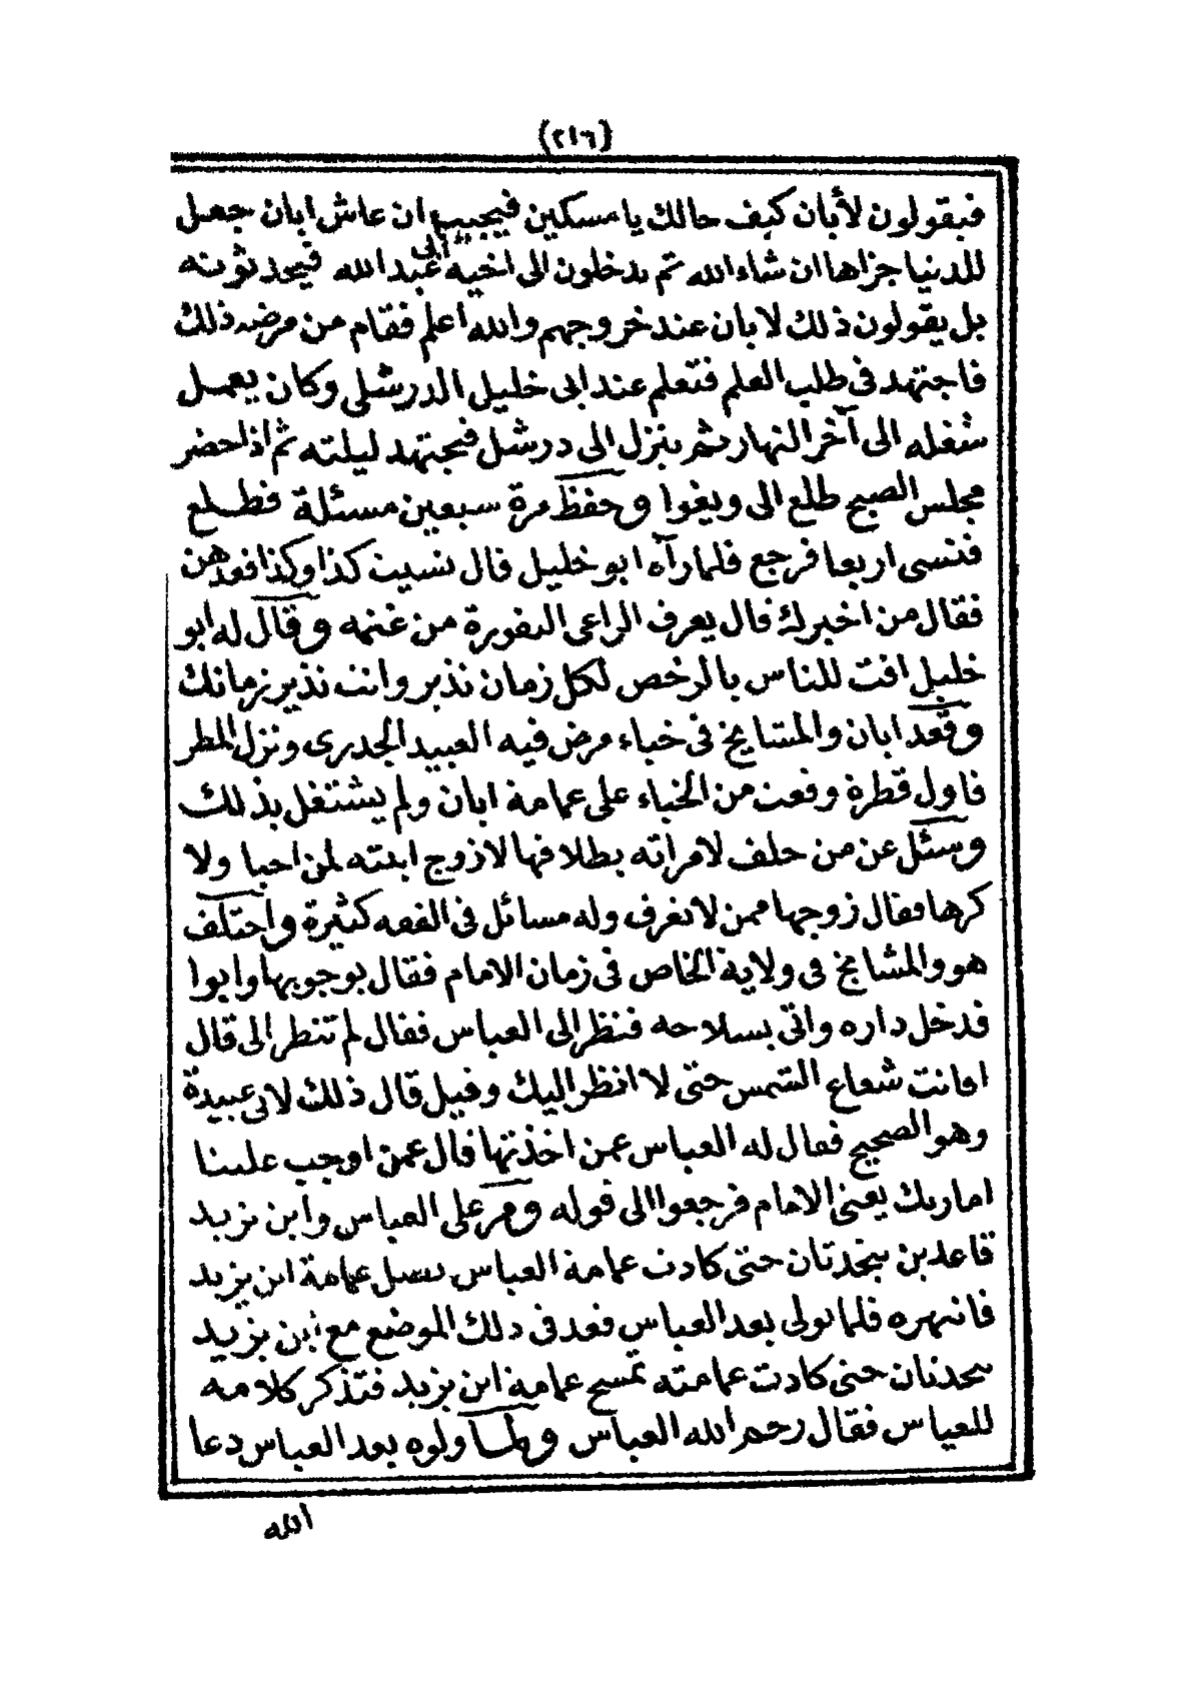 (٢١٦)
فيقولون لأبان كيف حالك يا مسكين فيجيب ان عاش ابان جعل
للدنيا جزاها ان شاء الله ثم يدخلون الى اخيه ابى عبد الله فيحدثونه
بل يقولون ذلك لابان عند خروجهم والله اعلم فقام من مرضه ذلك
فاجتهد فى طلب العلم فتعلم عند ابى خليل الدرشلى وكان يعمل
شغله الى آخر النهار ثم ينزل الى درشل فيجتهد ليلته ثم اذا حضر
مجلس الصبح طلع الى ويغوا وحفظ مرة سبعين مسئلة فطلع
فتنسى اربعا فرجع فلما رآه ابو خليل قال نسيت كذا وكذا فعدهن
فقال من اخبرك قال يعرف الراعى النفورة من غنمه وقال له ابو
خليل افت للناس بالرخص لكل زمان نذير وانت نذير زمانك
وقعد ابان والمشايخ فى خباء مرض فيه العبيد الجدرى ونزل المطر
فاول قطرة وقعت من الخباء على عمامة ابان ولم يشتغل بذلك
وسئل عن من حلف لامراته بطلاقها لازوج ابنته لمن احبا ولا
كرها فقال زوجها ممن لا تعرف وله مسائل فى الفقه كثيرة واختلف
هو والمشايخ فى ولاية الخاص فى زمان الامام فقال بوجوبها وابوا
فدخل داره واتى بسلاحه فنظر الى العباس فقال لم تنظر الى قال
افانت شعاع الشمس حتى لا انظر اليك وقيل قال ذلك لابى عبيدة
وهو الصحيح فقال له العباس عمن اخذتها قال عمن اوجب علينا
امارتك يعنى الامام فرجعوا الى قوله ومر على العباس وابن يزيد
قاعدين يتحدثان حتى كادت عمامة العباس تصل عمامة ابن يزيد
فانتهره فلما تولى بعد العباس قعد فى ذلك الموضع مع ابن يزيد
يتحدثان حتى كادت عمامته تمسح عمامة ابن يزيد فتذكر كلامه
للعباس فقال رحم الله العباس ولما ولوه بعد العباس دعا
الله